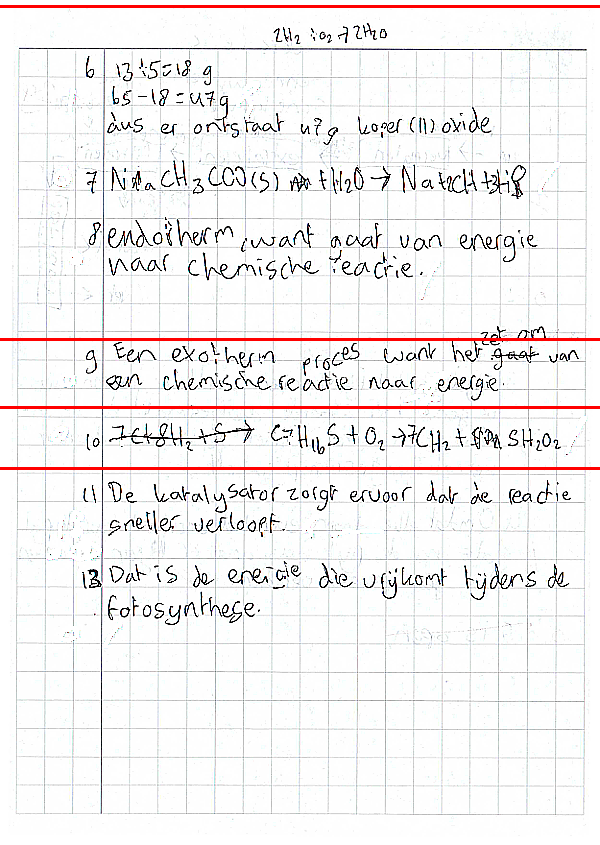 2H2 : O2 → 2H2O
6 13 : 5 = 18 g
65 - 18 = 47g
dus er ontstaat 47g koper (II) oxide
7 NaCH3COO(s) + H2O → Na + 2CH + 3H
8 endotherm, want gaat van energie
naar chemische reactie.
zet om
9 Een exotherm proces want het gaat van
een chemische reactie naar energie.
10 7C+8H2+S→ C7H16S + O2 → 7CH2 + SH2O2
11 De katalysator zorgt ervoor dat de reactie
sneller verloopt.
13 Dat is de energie die vrijkomt tijdens de
fotosynthese.